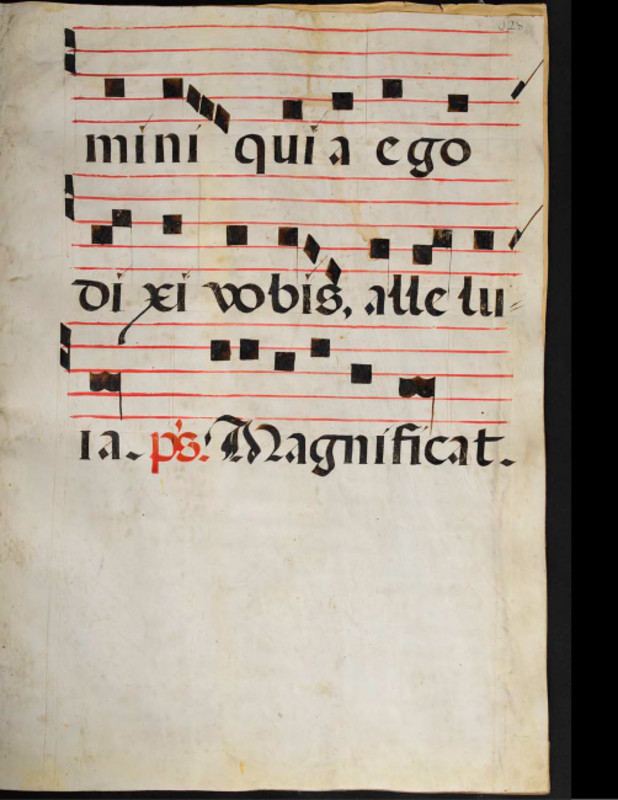 mini quia ego
dixi vobis, allelu=
ia. ps. Magnificat.